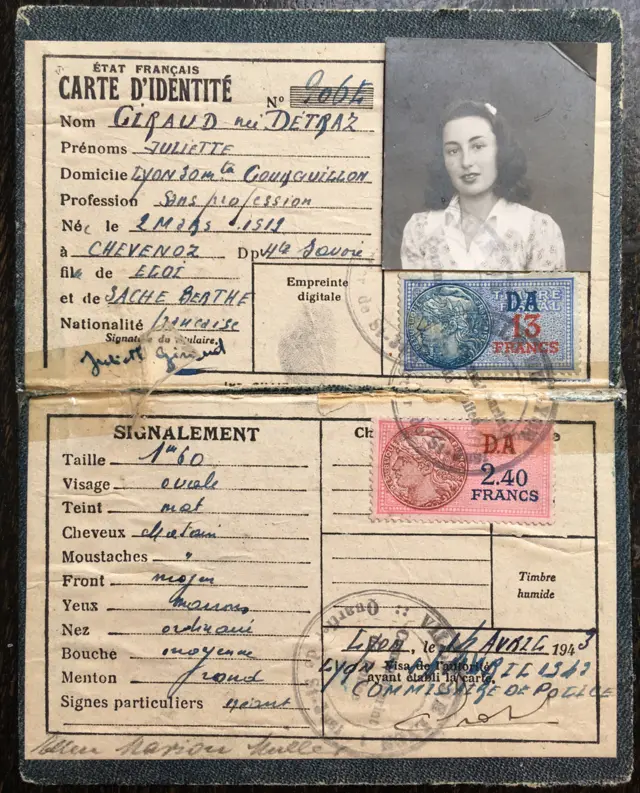 ÉTAT FRANÇAIS
CARTE D'IDENTITÉ
N° 2064
Nom GIRAUD née DETRAZ
Prénoms JULIETTE
Domicile LYON 30 mtée Gourguillon
Profession Sans profession
Née le 2 MARS 1919
à CHEVENOZ Dp Hte Savoie
fille de ELOI
et de SACHE BERTHE
Nationalité française
Signature du titulaire,
Juliette Giraud
Empreinte
digitale
D.A
13
FRANCS
SIGNALEMENT
Taille 1m60
Visage ovale
Teint mat
Cheveux chatain
Moustaches "
Front moyen
Yeux marrons
Nez ordinaire
Bouche moyenne
Menton rond
Signes particuliers néant
D.A
2.40
FRANCS
Timbre
humide
Lyon, le AVRIL 1943
Visa de l'autorité
ayant établi la carte,
LYON AVRIL 1943
COMMISSAIRE DE POLICE
Marion